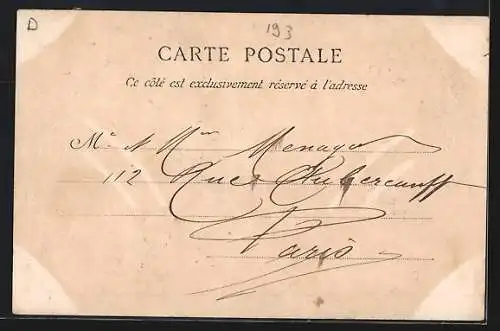 D
193
CARTE POSTALE
Ce côté est exclusivement réservé à l'adresse
Mr et Mme Menager
112 Rue Oubercamff
Paris